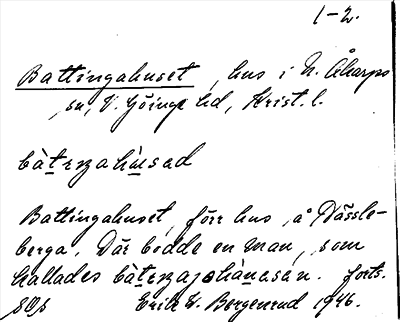 1-2.
Battingahuset, hus i N. Åkarps
sn, V. Göinge hd, Krist. l.
bàtɪŋahu̇sad
Battingahuset, förr hus å Hässle-
berga. Där bodde en man, som
kallades forts.
SOS Erik W. Bergenrud 1946.